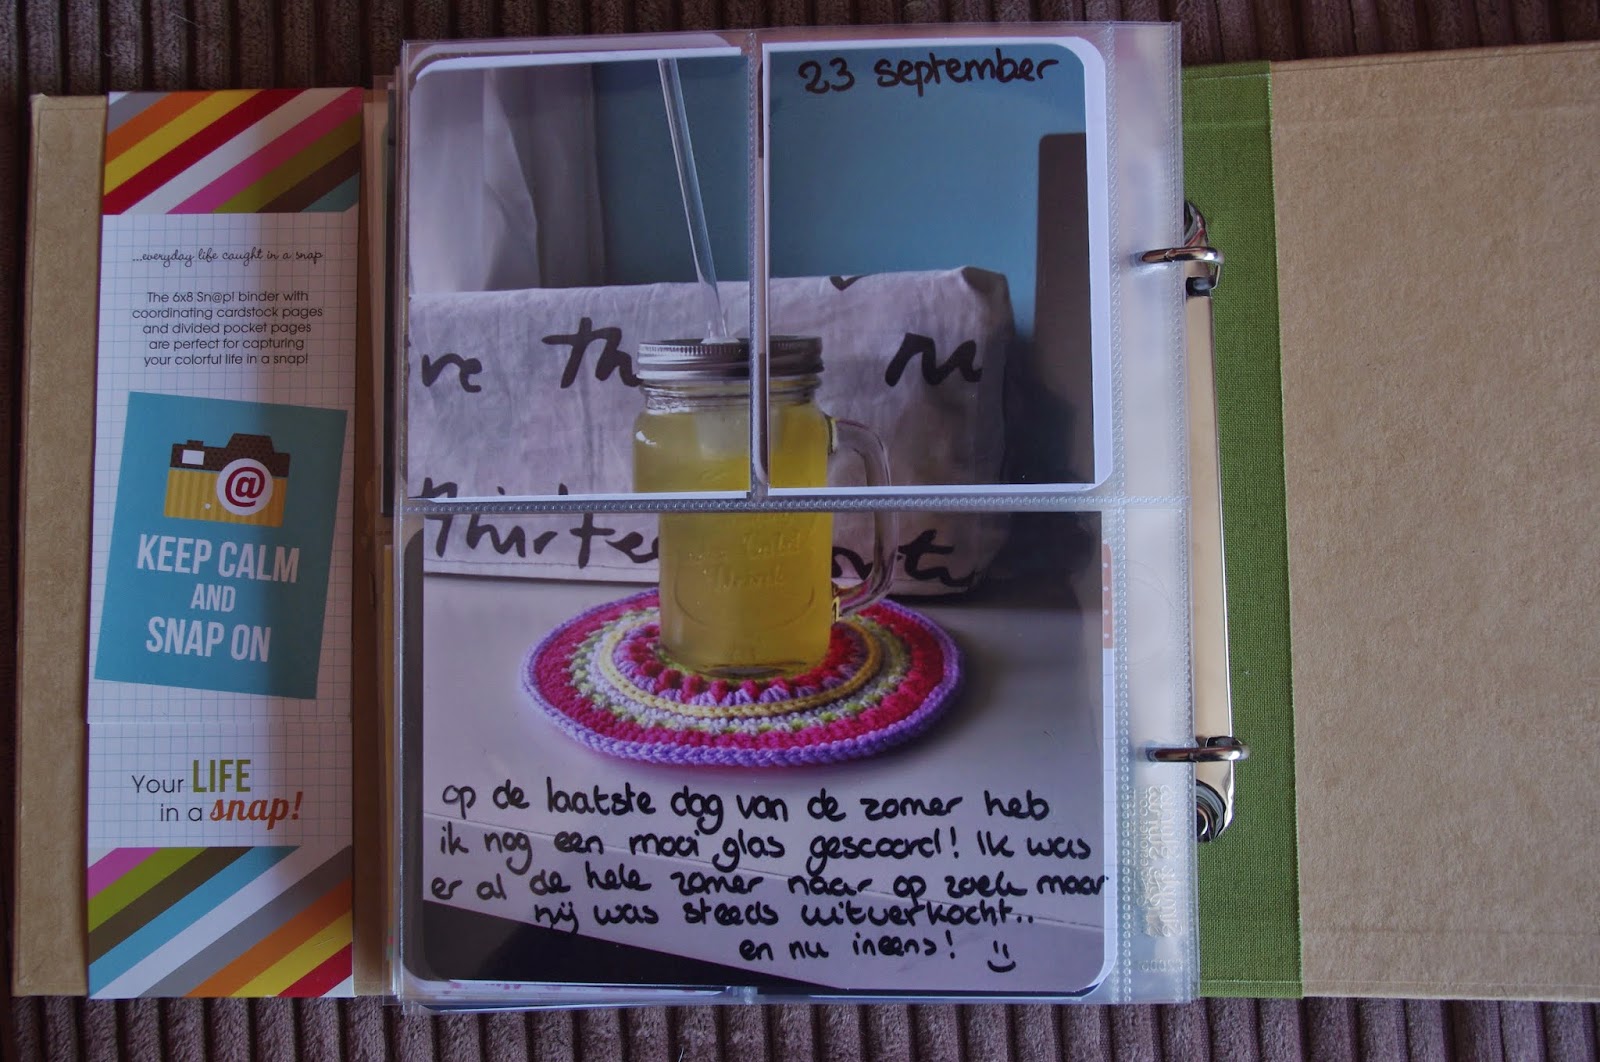 ...everyday life caught in a snap
The 6x8 Sn@p! binder with
coordinating cardstock pages
and divided pocket pages
are perfect for capturing
your colorful life in a snap!
@
KEEP CALM
AND
SNAP ON
Your LIFE
in a snap!
23 september
op de laatste dag van de zomer heb
ik nog een mooi glas gescoord! Ik was
er al de hele zomer naar op zoek maar
hij was steeds uitverkocht..
en nu ineens! :)